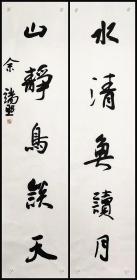 水清魚讀月
山靜鳥談天
余瑞熙